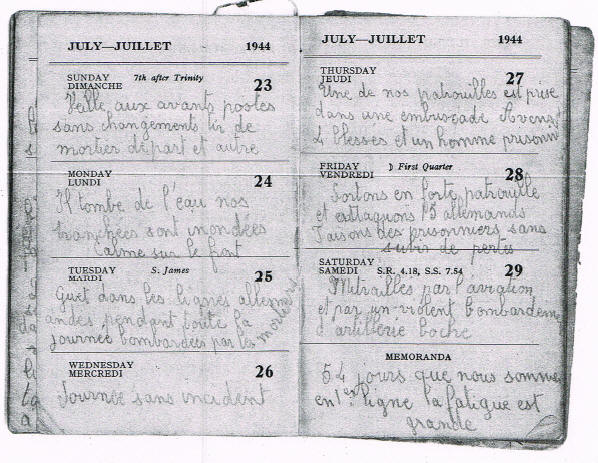 JULY—JUILLET 1944
SUNDAY 7th after Trinity 23
DIMANCHE
Valle aux avants postes
sans changements tir de
mortier départ et autre
MONDAY 24
LUNDI
Il tombe de l'eau nos
tranchées sont inondées
calme sur le font
TUESDAY S. James 25
MARDI
Guet dans les lignes allem
andes pendant toute la
journée bombardées par les mortiers
WEDNESDAY 26
MERCREDI
Journée sans incident
JULY—JUILLET 1944
THURSDAY 27
JEUDI
Une de nos patrouilles est prise
dans une embuscade Avons
4 blesses et un homme prisonni
FRIDAY ☽ First Quarter 28
VENDREDI
Sortons en forte patrouille
et attaquons 15 allemands
Faisons des prisonniers sans
subir de pertes
SATURDAY 29
SAMEDI S.R. 4.18, S.S. 7.54
Mitrailles par l'aviation
et par un violent bombardeme
d'artillerie boche
MEMORANDA
54 jours que nous somme
en 1er ligne la fatigue est
grande